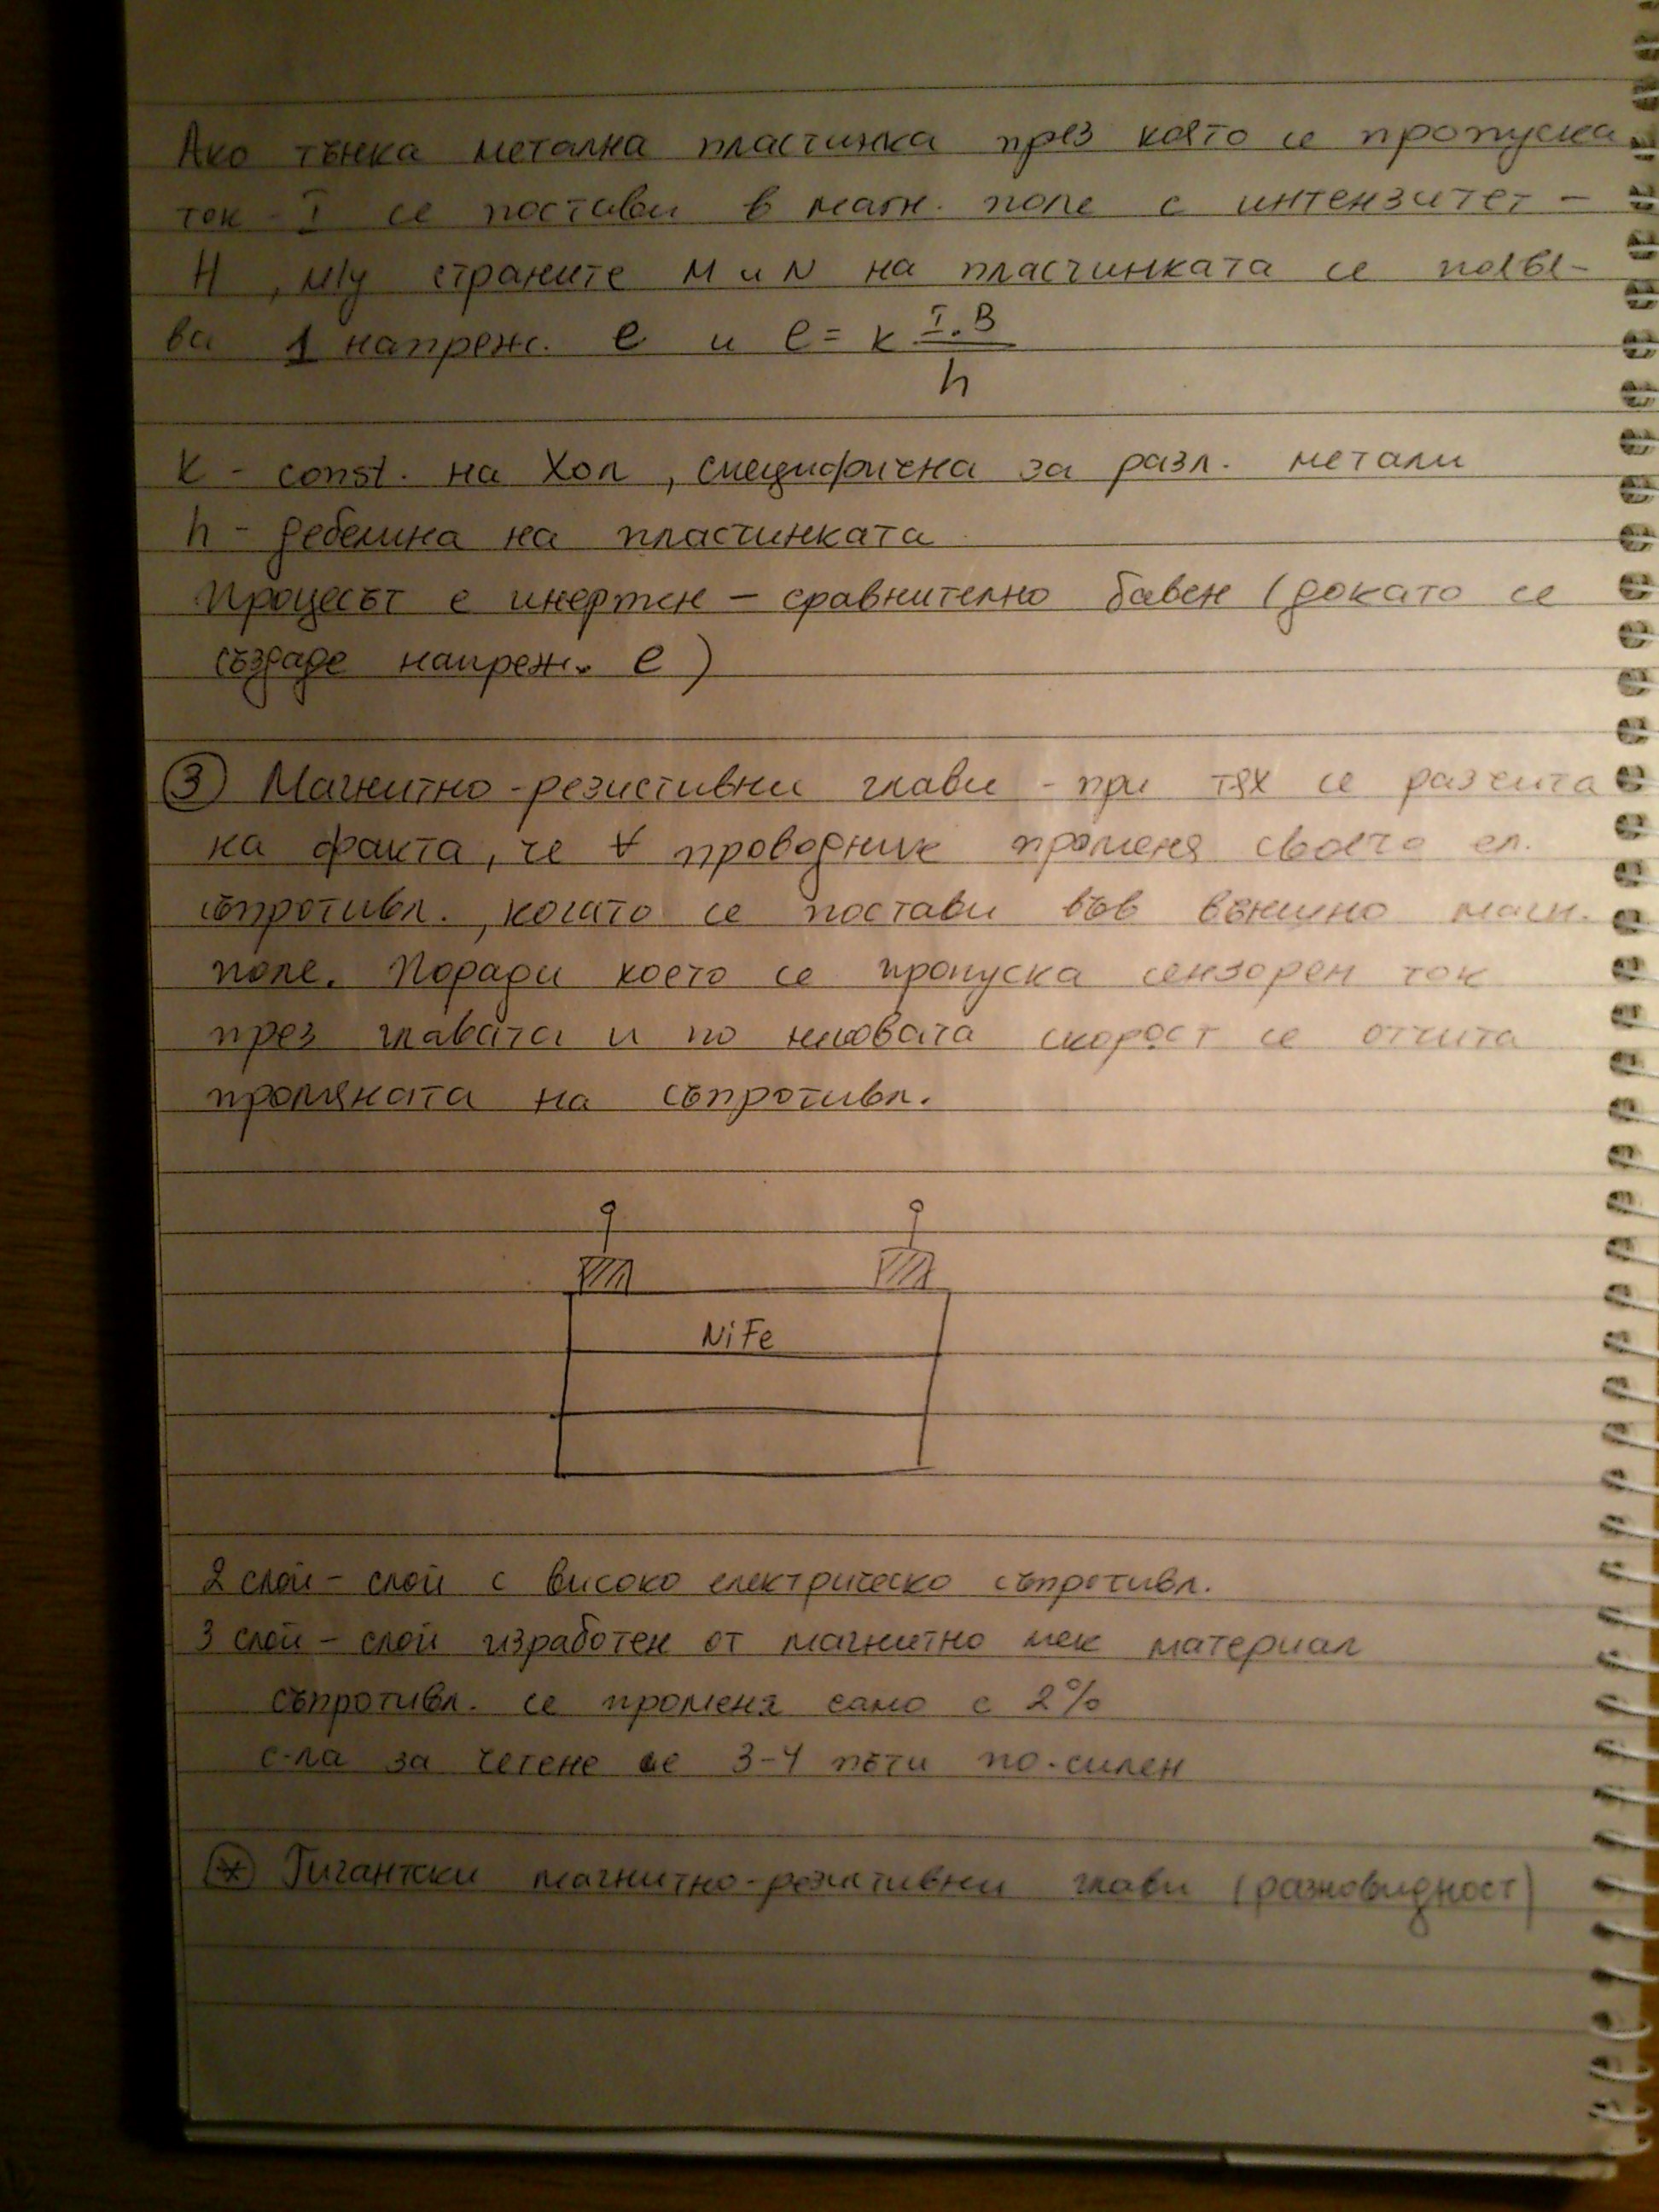 Ако тънка метална пластинка през която се пропуска
ток - I се постави в магн. поле с интензитет -
H , м/у страните M и N на пластинката се появя-
ва 1 напреж. e и e = k I.B / h
k - const. на Хол , специфична за разл. метали
h - дебелина на пластинката
Процесът е инертен - сравнително бавен (докато се
създаде напреж. e )
3 Магнитно-резистивни глави - при тях се разчита
на факта, че ∀ проводник променя своето ел.
съпротивл. , когато се постави във външно магн.
поле. Поради което се пропуска сензорен ток
през главата и по неговата скорост се отчита
промяната на съпротивл.
NiFe
2 слой - слой с високо електрическо съпротивл.
3 слой - слой изработен от магнитно мек материал
съпротивл. се променя само с 2%
с-ла за четене е 3-4 пъти по-силен
* Гигантски магнитно-резистивни глави (разновидност)